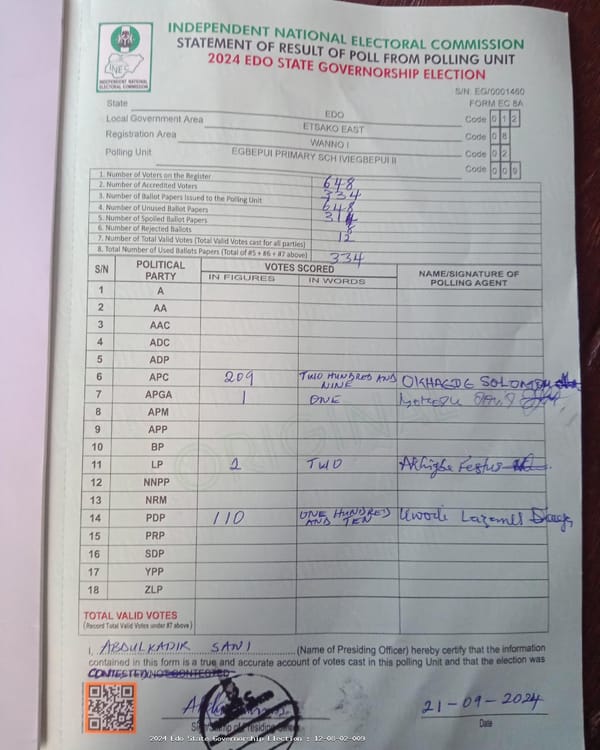 INDEPENDENT NATIONAL ELECTORAL COMMISSION
STATEMENT OF RESULT OF POLL FROM POLLING UNIT
2024 EDO STATE GOVERNORSHIP ELECTION
INEC
INDEPENDENT NATIONAL ELECTORAL COMMISSION
S/N: EG/0001460
FORM EC 8A
State EDO Code 0 1 2
Local Government Area ETSAKO EAST Code 0 8
Registration Area WANNO I Code 0 2
Polling Unit EGBEPUI PRIMARY SCH IVIEGBEPUI II Code 0 0 9
1. Number of Voters on the Register 648
2. Number of Accredited Voters 334
3. Number of Ballot Papers Issued to the Polling Unit 648
4. Number of Unused Ballot Papers 314
5. Number of Spoiled Ballot Papers
6. Number of Rejected Ballots 12
7. Number of Total Valid Votes (Total Valid Votes cast for all parties)
8. Total Number of Used Ballots Papers (Total of #5 + #6 + #7 above) 334
S/N POLITICAL PARTY VOTES SCORED NAME/SIGNATURE OF POLLING AGENT
IN FIGURES IN WORDS
1 A
2 AA
3 AAC
4 ADC
5 ADP
6 APC 209 TWO HUNDRED AND NINE SOLOMON
7 APGA 1 ONE
8 APM
9 APP
10 BP
11 LP 2 TWO Akhigbe Festus
12 NNPP
13 NRM
14 PDP 110 ONE HUNDRED AND TEN
15 PRP
16 SDP
17 YPP
18 ZLP
TOTAL VALID VOTES
(Record Total Valid Votes under #7 above)
I, ABDULKADIR SANI (Name of Presiding Officer) hereby certify that the information
contained in this form is a true and accurate account of votes cast in this polling Unit and that the election was
CONTESTED/NOT CONTESTED
21-09-2024
Date
2024 Edo State Governorship Election : 12-08-02-009